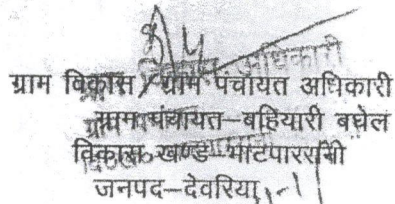 ग्राम विकास/ग्राम पंचायत अधिकारी
ग्राम पंचायत–बहियारी बघेल
विकास खण्ड–भाटपाररानी
जनपद–देवरिया